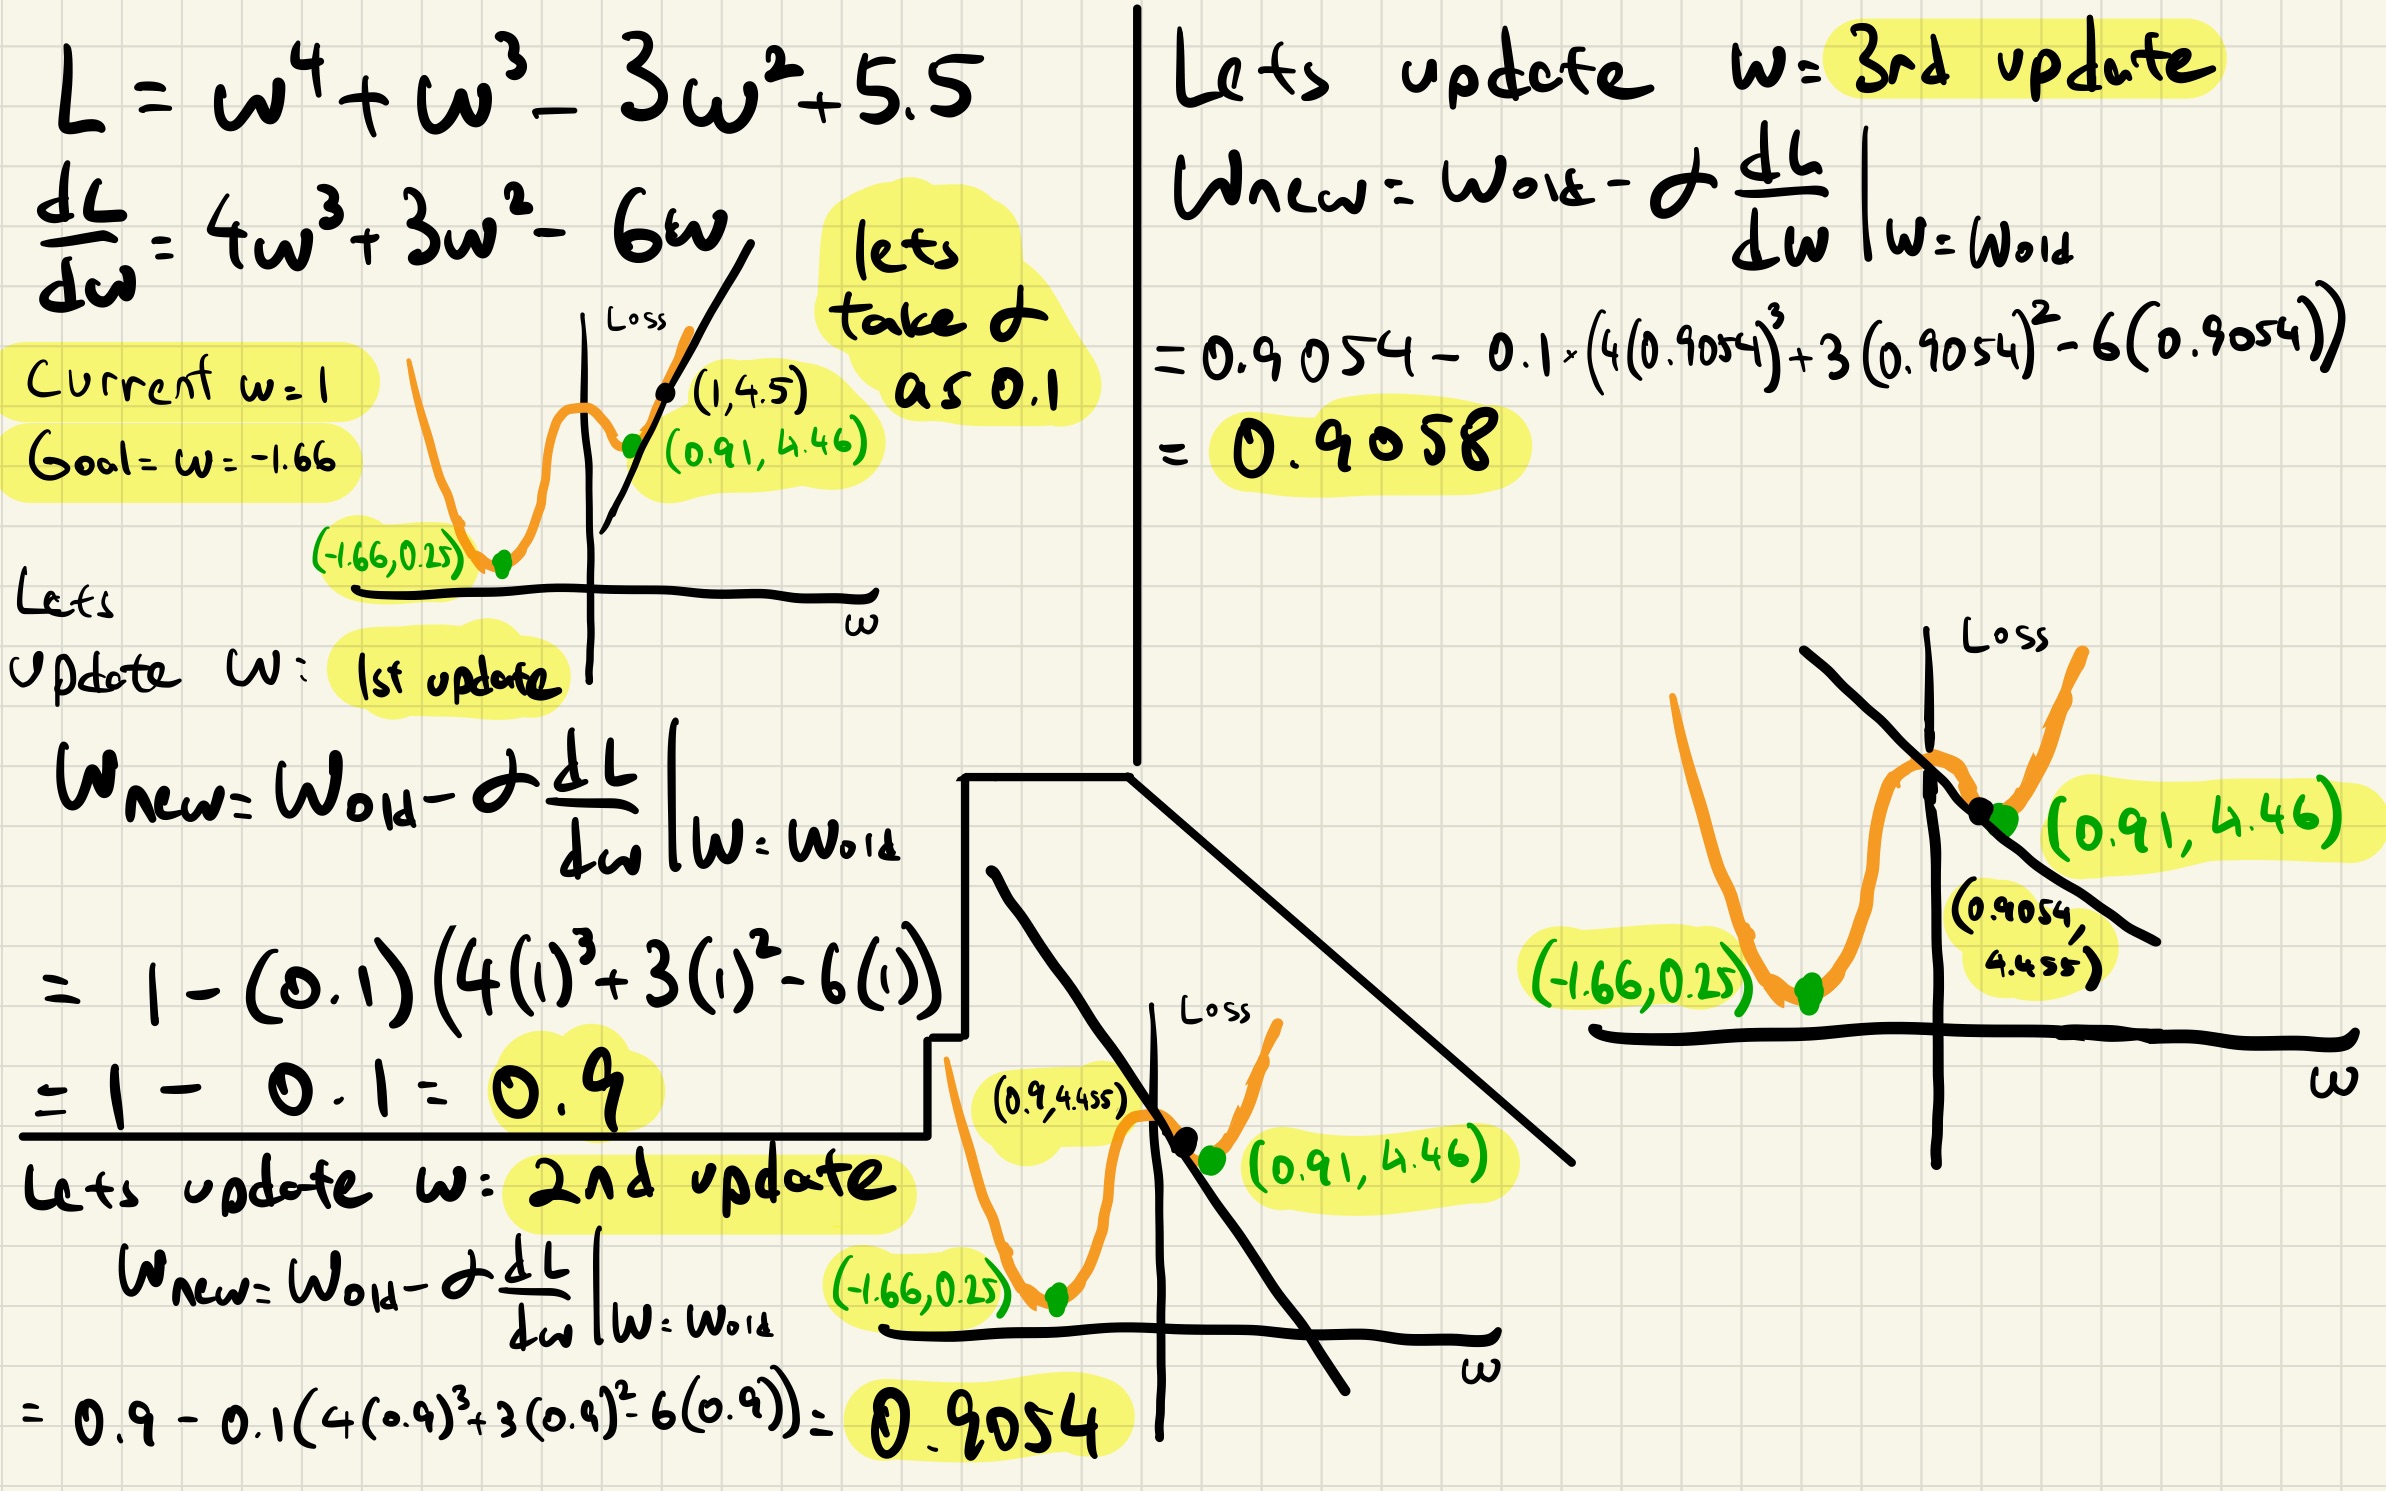 L = w⁴ + w³ - 3w² + 5.5
dL/dw = 4w³ + 3w² - 6w
lets
take α
as 0.1
Current w = 1
Goal = w = -1.66
Loss
(1, 4.5)
(0.91, 4.46)
(-1.66, 0.25)
w
Lets
update w: 1st update
Wnew = Wold - α dL/dw | w = wold
= 1 - (0.1)(4(1)³ + 3(1)² - 6(1))
= 1 - 0.1 = 0.9
Lets update w: 2nd update
Wnew = Wold - α dL/dw | w = wold
= 0.9 - 0.1(4(0.9)³ + 3(0.9)² - 6(0.9)) = 0.9054
Loss
(0.9, 4.455)
(0.91, 4.46)
(-1.66, 0.25)
w
Lets update w = 3rd update
Wnew = Wold - α dL/dw | w = wold
= 0.9054 - 0.1 × (4(0.9054)³ + 3(0.9054)² - 6(0.9054))
= 0.9058
Loss
(0.91, 4.46)
(0.9054,
4.455)
(-1.66, 0.25)
w